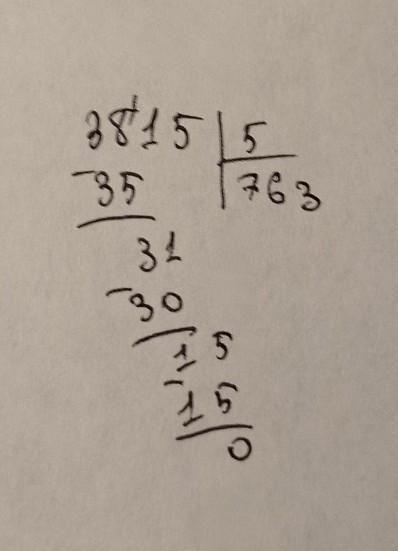 3815 | 5
-35 | 763
31
-30
15
-15
0